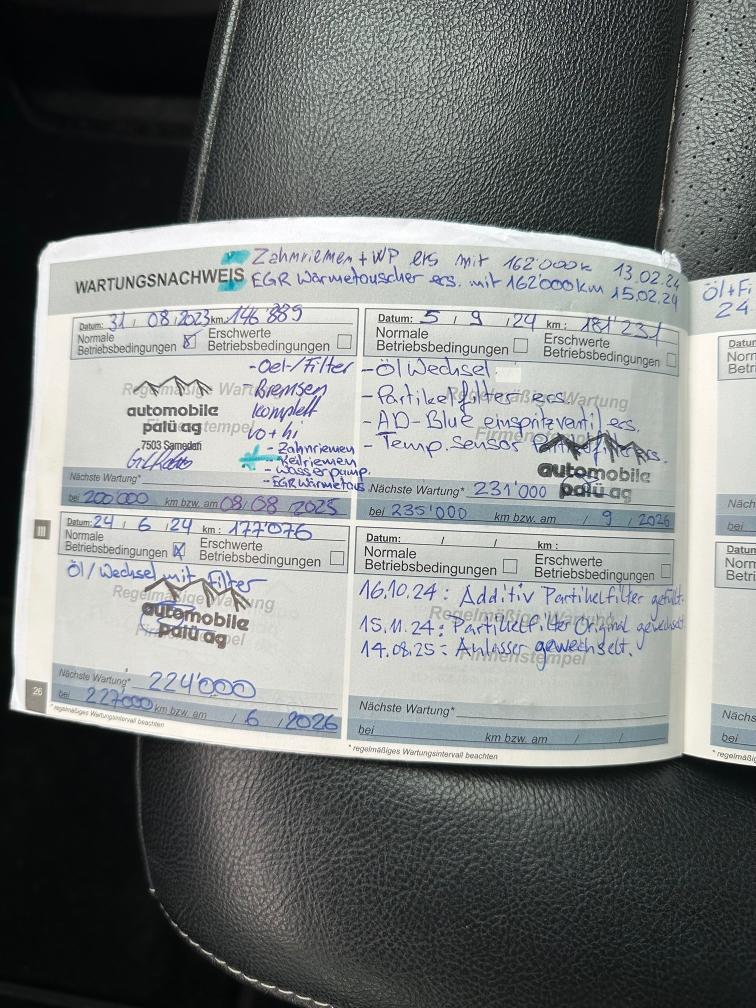 Zahnriemen + WP ers mit 162'000k 13.02.24
WARTUNGSNACHWEIS
EGR Wärmetauscher ers. mit 162'000km 15.02.24
Datum: 31 / 08 / 2023 km: 146'885
Normale Betriebsbedingungen
Erschwerte Betriebsbedingungen
-Oel-/Filter
-Bremsen
komplett
vo + hi
- Zahnriemen
- Keilriemen
- Wasserpump.
- EGR Wärmetaus
Regelmäßige Wartung
automobile
palü ag
7503 Samedan
Nächste Wartung*
bei 200'000 km bzw. am 08/08/2025
Datum: 5 / 9 / 24 km: 181'231
Normale Betriebsbedingungen
Erschwerte Betriebsbedingungen
- Öl Wechsel
- Partikelfilter ers.
- AD-Blue einspritzventil ers.
- Temp. sensor
Regelmäßige Wartung
automobile
palü ag
Nächste Wartung* 231'000
bei 235'000 km bzw. am / 9 / 2026
Datum: 24 / 6 / 24 km: 177'076
Normale Betriebsbedingungen
Erschwerte Betriebsbedingungen
Öl/Wechsel mit filter
Regelmäßige Wartung
automobile
palü ag
Nächste Wartung* 224'000
bei 227'000 km bzw. am / 6 / 2026
* regelmäßiges Wartungsintervall beachten
Datum: / / km:
Normale Betriebsbedingungen
Erschwerte Betriebsbedingungen
16.10.24: Additiv Partikelfilter gefüllt.
15.11.24: Partikelfilter Original gewechselt.
14.08.25: Anlasser gewechselt.
Regelmäßige Wartung
Firmenstempel
Nächste Wartung*
bei km bzw. am / /
* regelmäßiges Wartungsintervall beachten
III
26
Öl+Fi
24.
Datu
Norm
Betri
Näch
bei
Datu
Norm
Betri
Nächs
bei
* regelmäßig